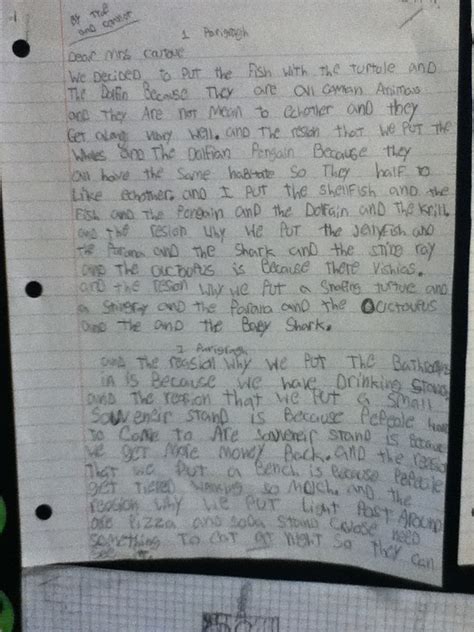 By
and Connor
1 Parigragh
Dear Mrs
We Decided to Put the Fish with the turtole and
The Dolfin Because They are all Common Animas
and They Are not Mean to echother and they
Get along Very Well. and The resion that We Put the
Wales and The Dolfian Pengain Because they
all have the Same habitate So They half to
Like echother. and I Put the Shellfish and the
Fish and the Pengain and the Dolfain and The Krill.
and the resion why We Put the Jellyfish and
the Parana and the Shark and the sting ray
and The ouctoupus is Because There Vishias.
and the resion Why we Put a Snaping turtule and
a Stingray and the Parana and the Ouctoupus
and The and the Baby Shark.
2 Parigragh
and The reasion why we Put The Bathrooms
in is Because we have Drinking Stands
and the reasion that we Put a Small
Souvenir Stand is Because Pepeole have
to Come to Are Souvenir Stand is Because
We get More Money Back. and the reasion
That we Put a Bench is Because Pepeole
get Tiered Walking So Much. and the
reasion why we Put Light Post Around
are Pizza and Soda Stand need
something To eat at Night So They Can
see